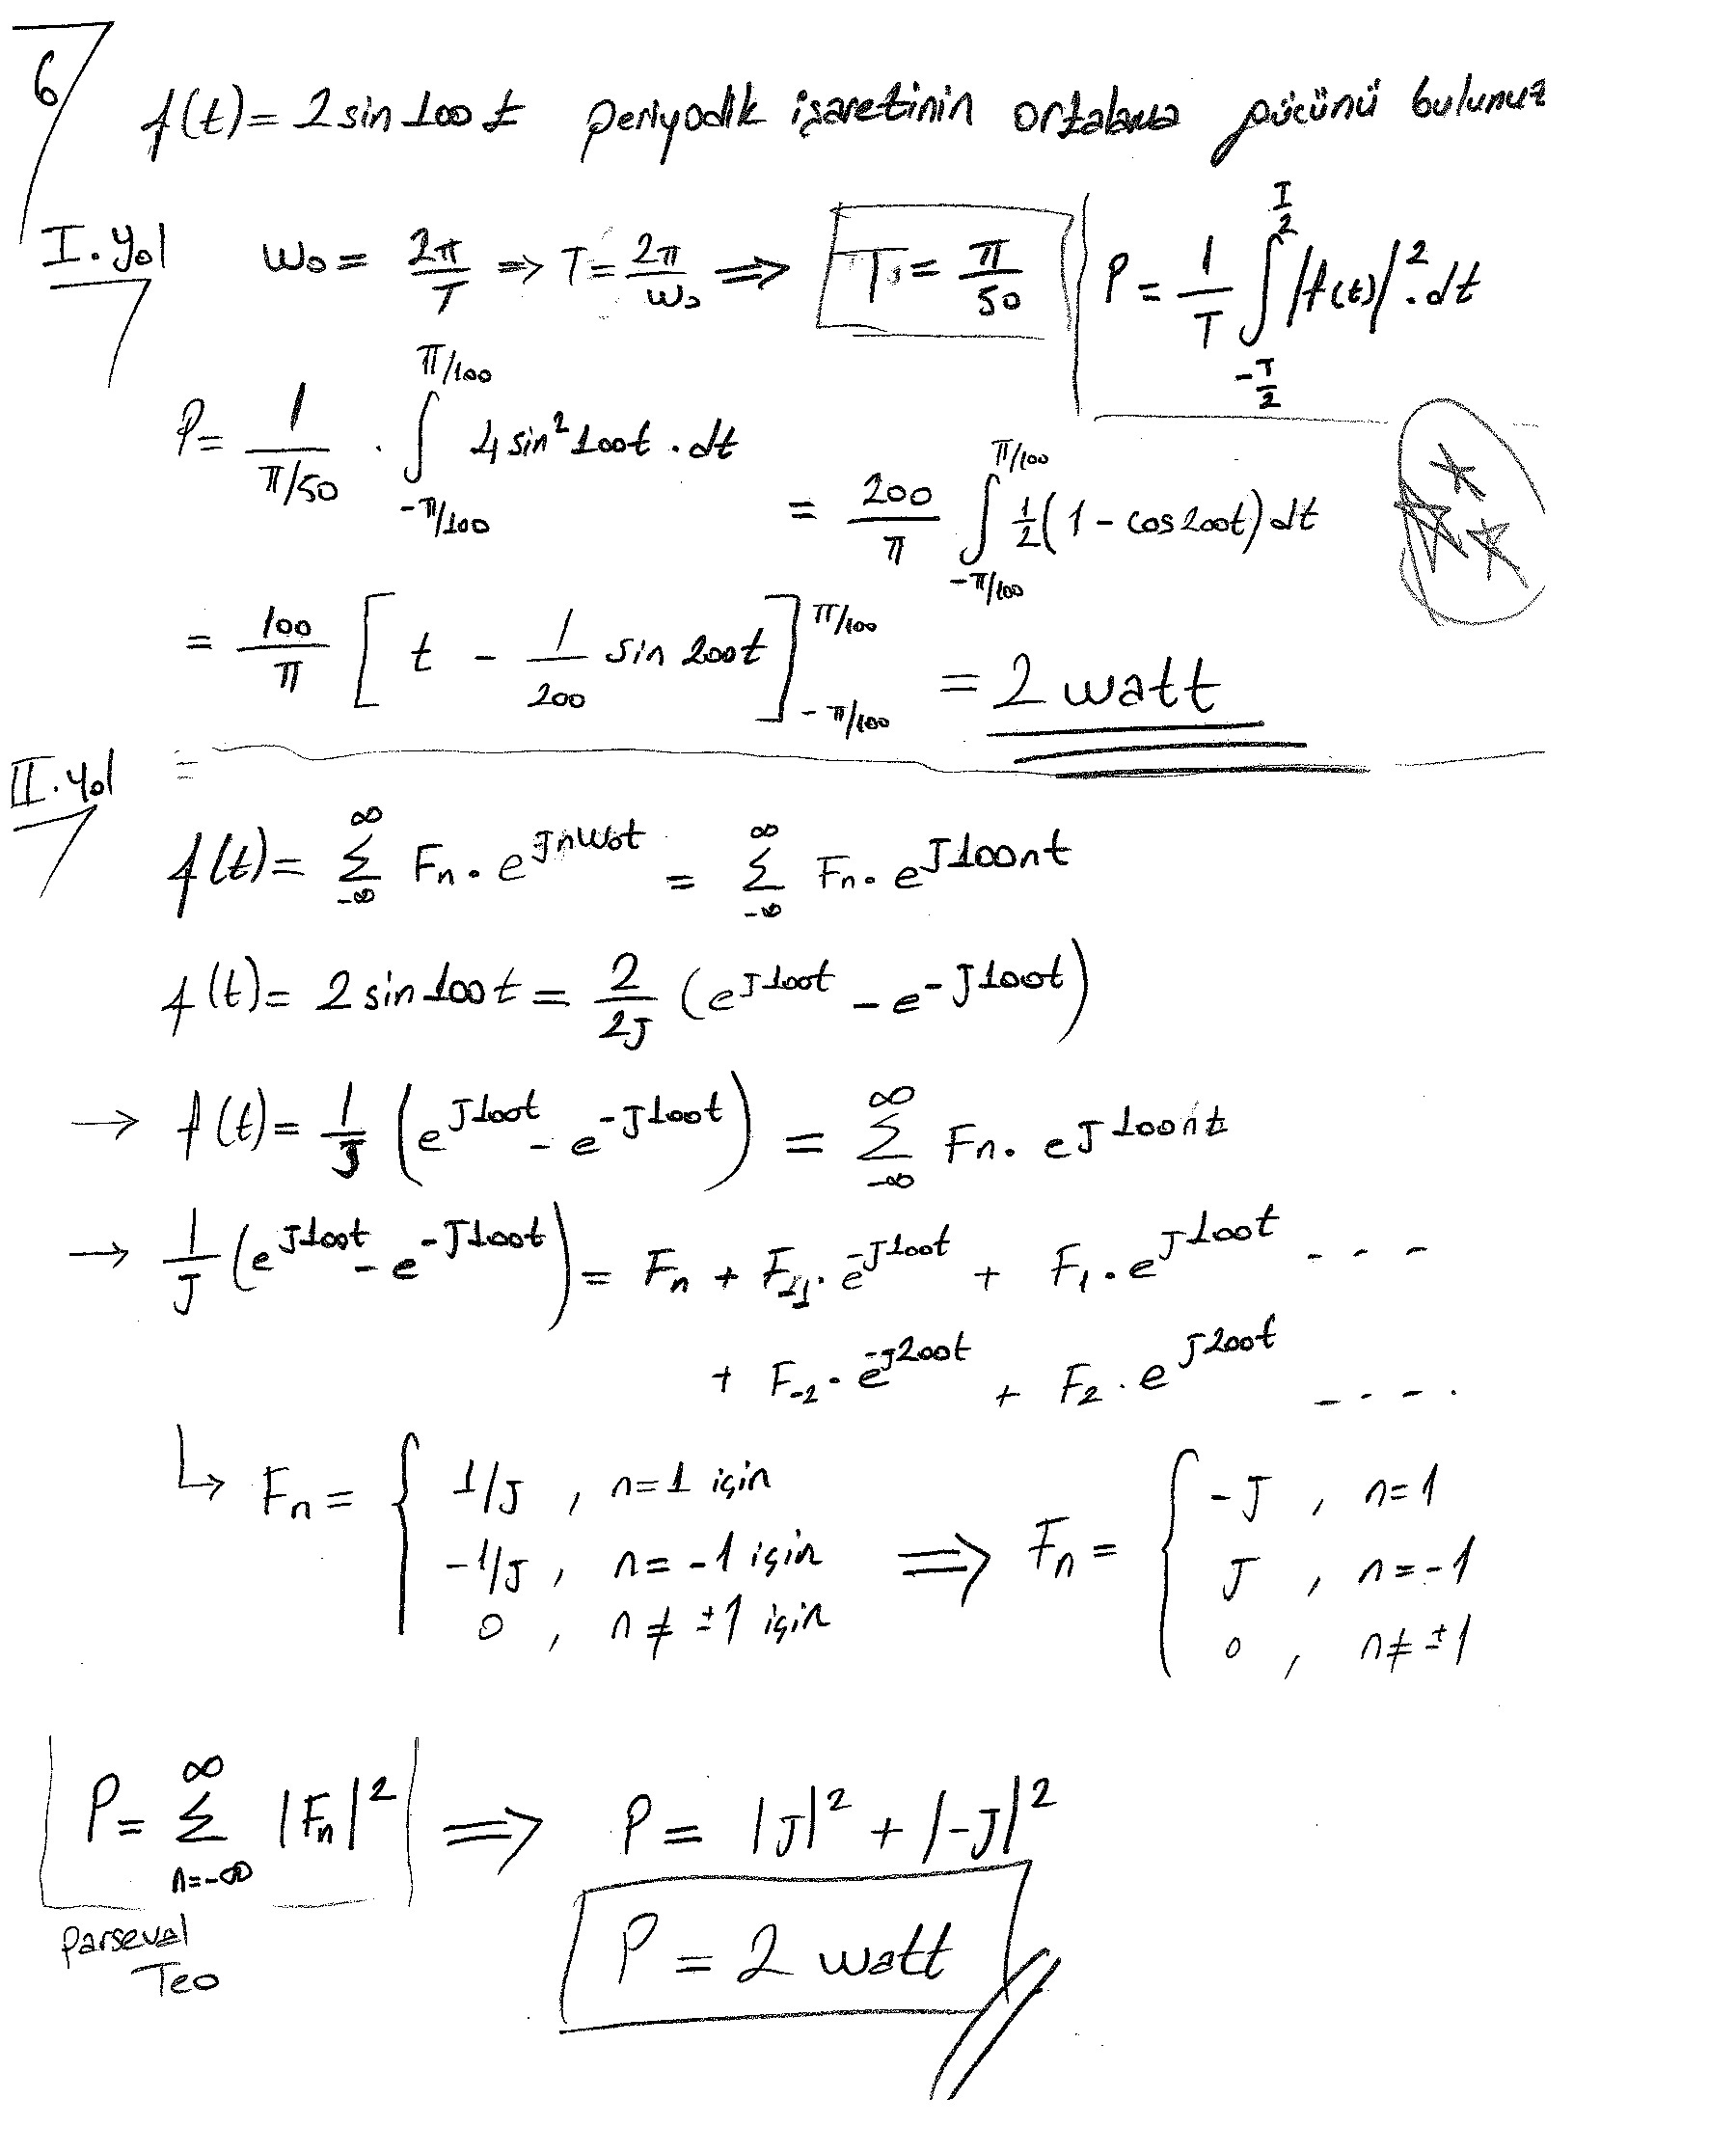 6
f(t) = 2 sin 100 t periyodik işaretinin ortalama gücünü bulunuz
I. yol w₀ = 2π/T ⇒ T = 2π/w₀ ⇒ T = π/50 P = 1/T ∫_{-T/2}^{T/2} |f(t)|².dt
P = 1/(π/50) · ∫_{-π/100}^{π/100} 4 sin² 100t . dt
= 200/π ∫_{-π/100}^{π/100} 1/2 (1 - cos 200t) dt
= 100/π [ t - 1/200 sin 200t ]_{-π/100}^{π/100} = 2 watt
II. yol =
f(t) = Σ_{-∞}^{∞} Fn . e^{Jnw₀t} = Σ_{-∞}^{∞} Fn . e^{J100nt}
f(t) = 2 sin 100 t = 2/2J (e^{J100t} - e^{-J100t})
→ f(t) = 1/J (e^{J100t} - e^{-J100t}) = Σ_{-∞}^{∞} Fn . e^{J100nt}
→ 1/J (e^{J100t} - e^{-J100t}) = Fn + F₋₁ . e^{-J100t} + F₁ . e^{J100t} - - -
+ F₋₂ . e^{-J200t} + F₂ . e^{J200t} - - - .
↳ Fn = { 1/J , n=1 için ⇒ Fn = { -J , n=1
-1/J , n=-1 için J , n=-1
0 , n≠±1 için 0 , n≠±1
P = Σ_{n=-∞}^{∞} |Fn|² ⇒ P = |J|² + |-J|²
Parseval
Teo
P = 2 watt